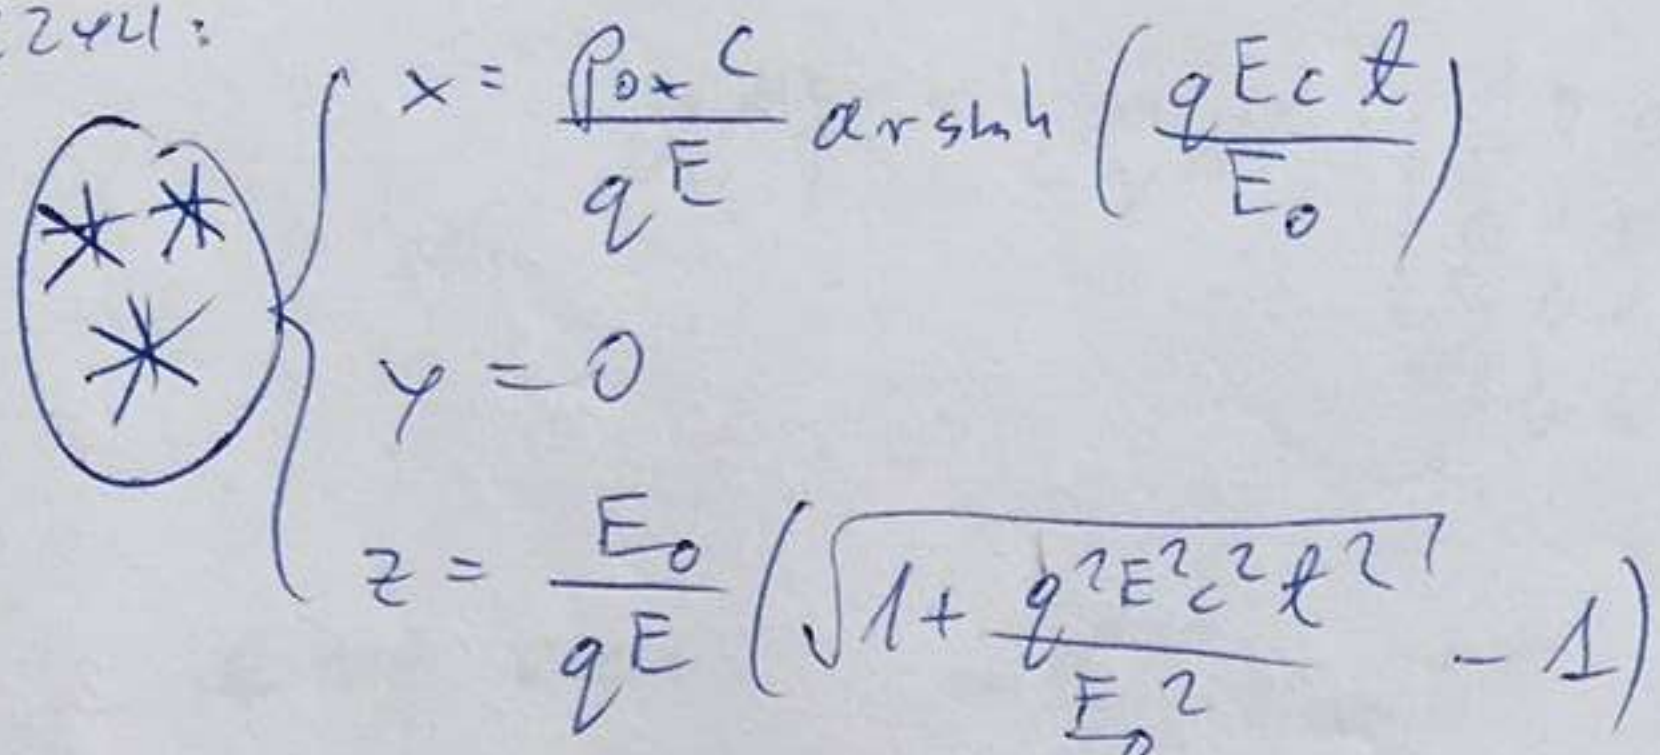 x = \frac{p_{ox} c}{qE} arsinh \left( \frac{qEct}{E_0} \right)
* * *
y = 0
z = \frac{E_0}{qE} \left( \sqrt{1 + \frac{q^2E^2c^2t^2}{E_0^2}} - 1 \right)